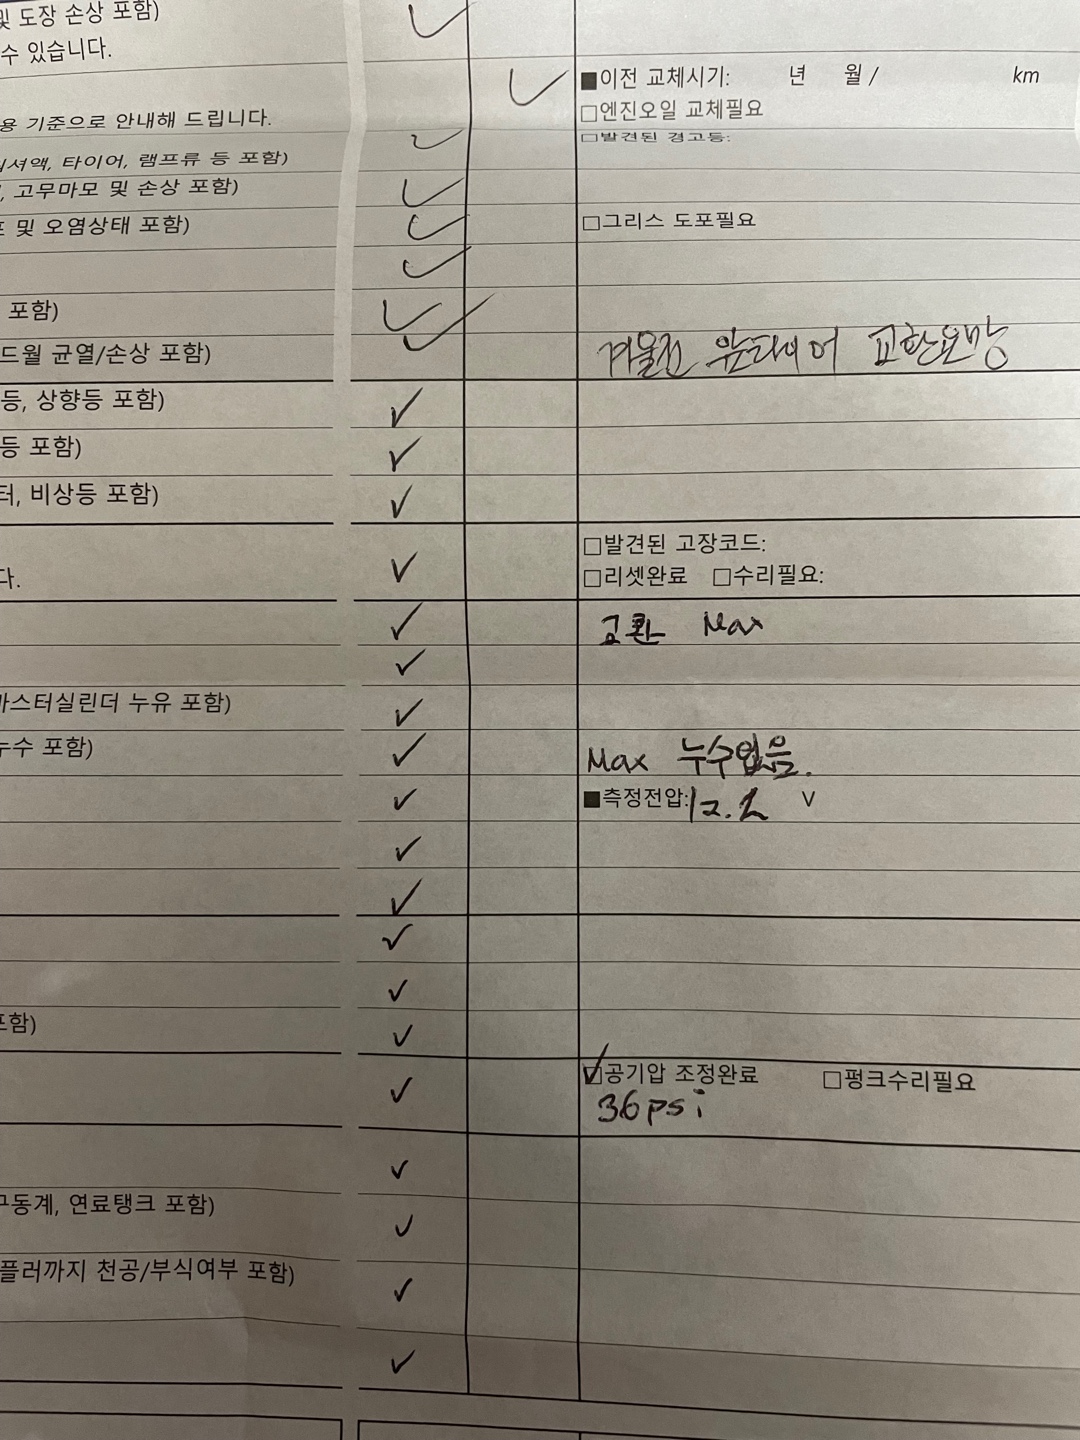 및 도장 손상 포함)
수 있습니다.
■이전 교체시기: 년 월 / km
□엔진오일 교체필요
용 기준으로 안내해 드립니다.
□발견된 경고등:
셔액, 타이어, 램프류 등 포함)
, 고무마모 및 손상 포함)
및 오염상태 포함)
□그리스 도포필요
포함)
드월 균열/손상 포함)
겨울전 앞타이어 교환요망
등, 상향등 포함)
등 포함)
터, 비상등 포함)
□발견된 고장코드:
다.
□리셋완료 □수리필요:
교환 Max
마스터실린더 누유 포함)
누수 포함)
Max 누수없음.
■측정전압: 12.2 V
포함)
☑공기압 조정완료 □펑크수리필요
36psi
구동계, 연료탱크 포함)
플러까지 천공/부식여부 포함)